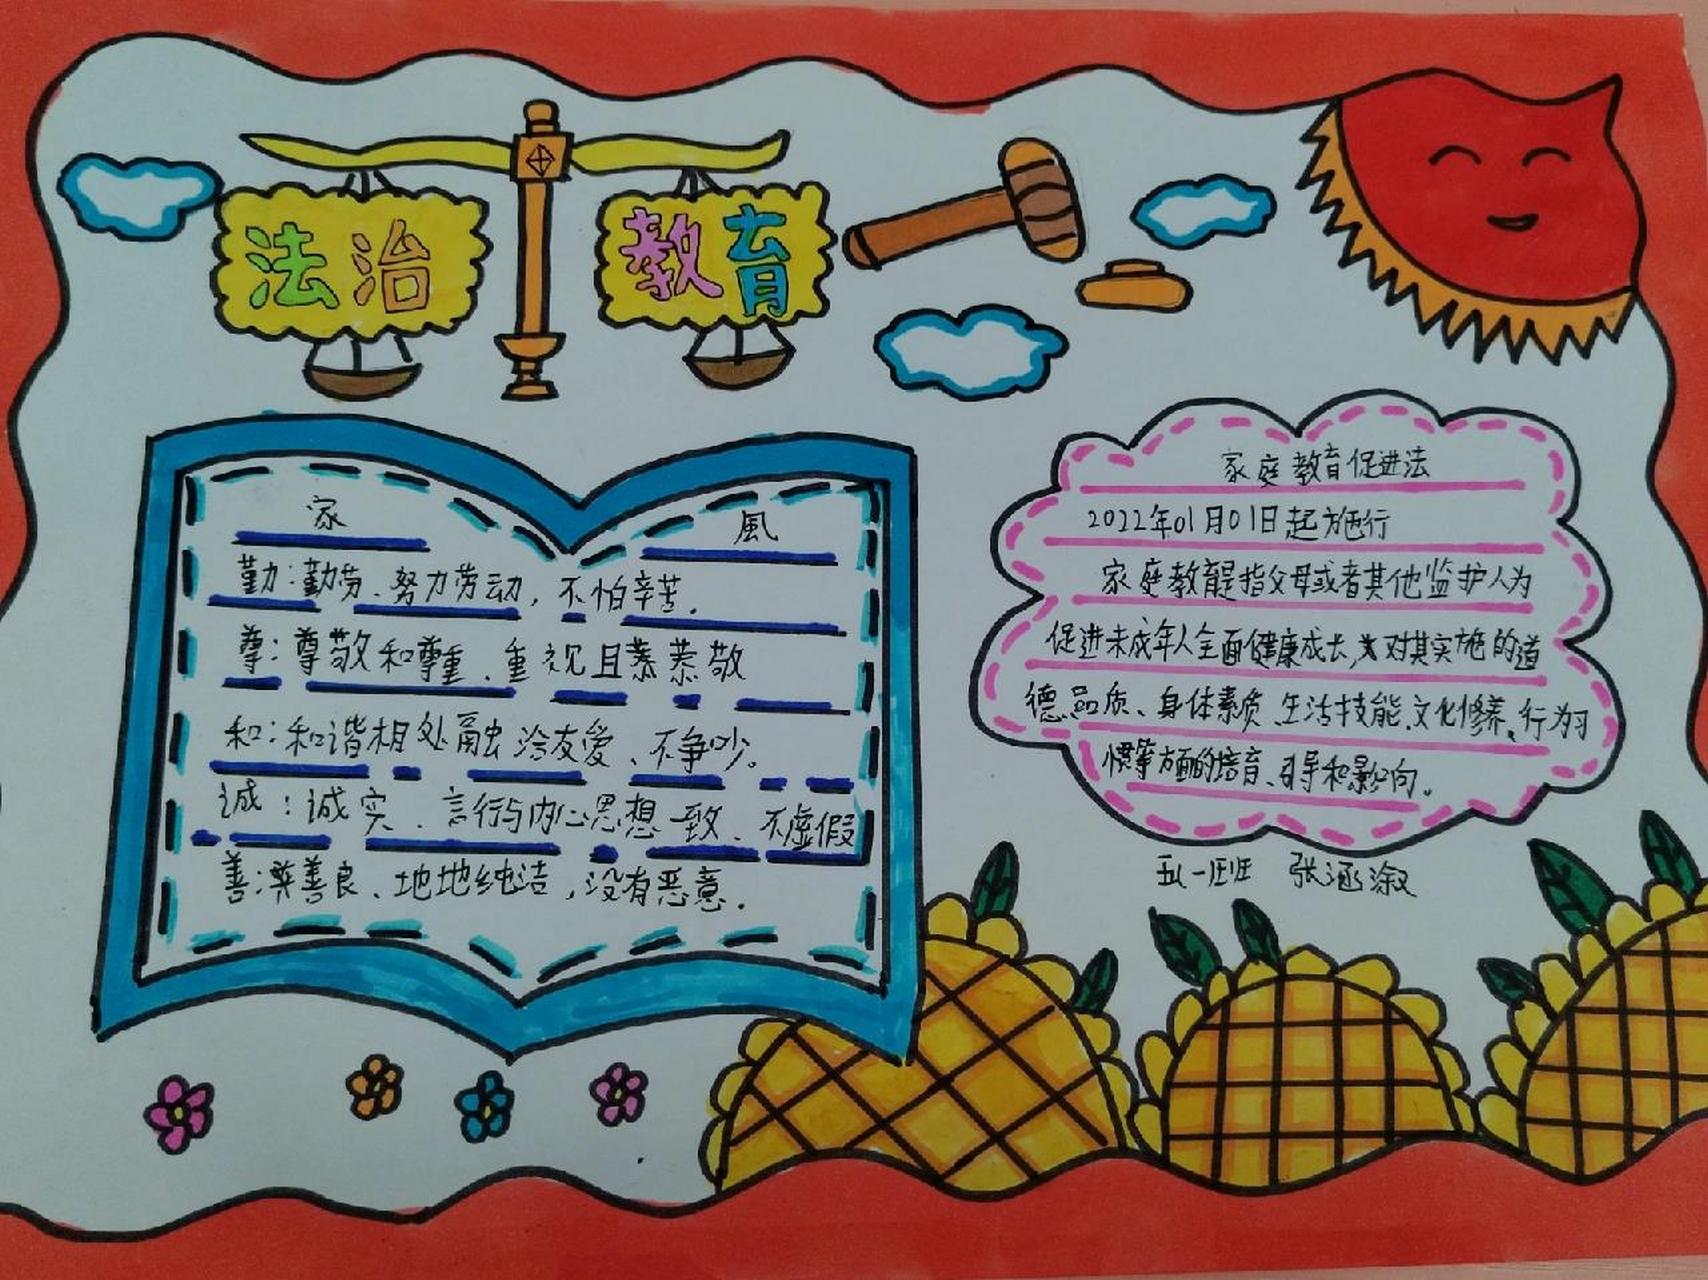 法治 教育
家 風
勤:勤劳、努力劳动,不怕辛苦.
尊:尊敬和尊重、重视且恭恭敬
和:和谐相处融洽友爱、不争吵。
诚:诚实、言行与内心思想一致、不虚假
善:善良、地地纯洁,没有恶意.
家庭教育促进法
2022年01月01日起施行
家庭教育是指父母或者其他监护人为
促进未成年人全面健康成长,对其实施的道
德品质、身体素质、生活技能、文化修养、行为习
惯等方面的培育、引导和影响。
五一班 张涵溆